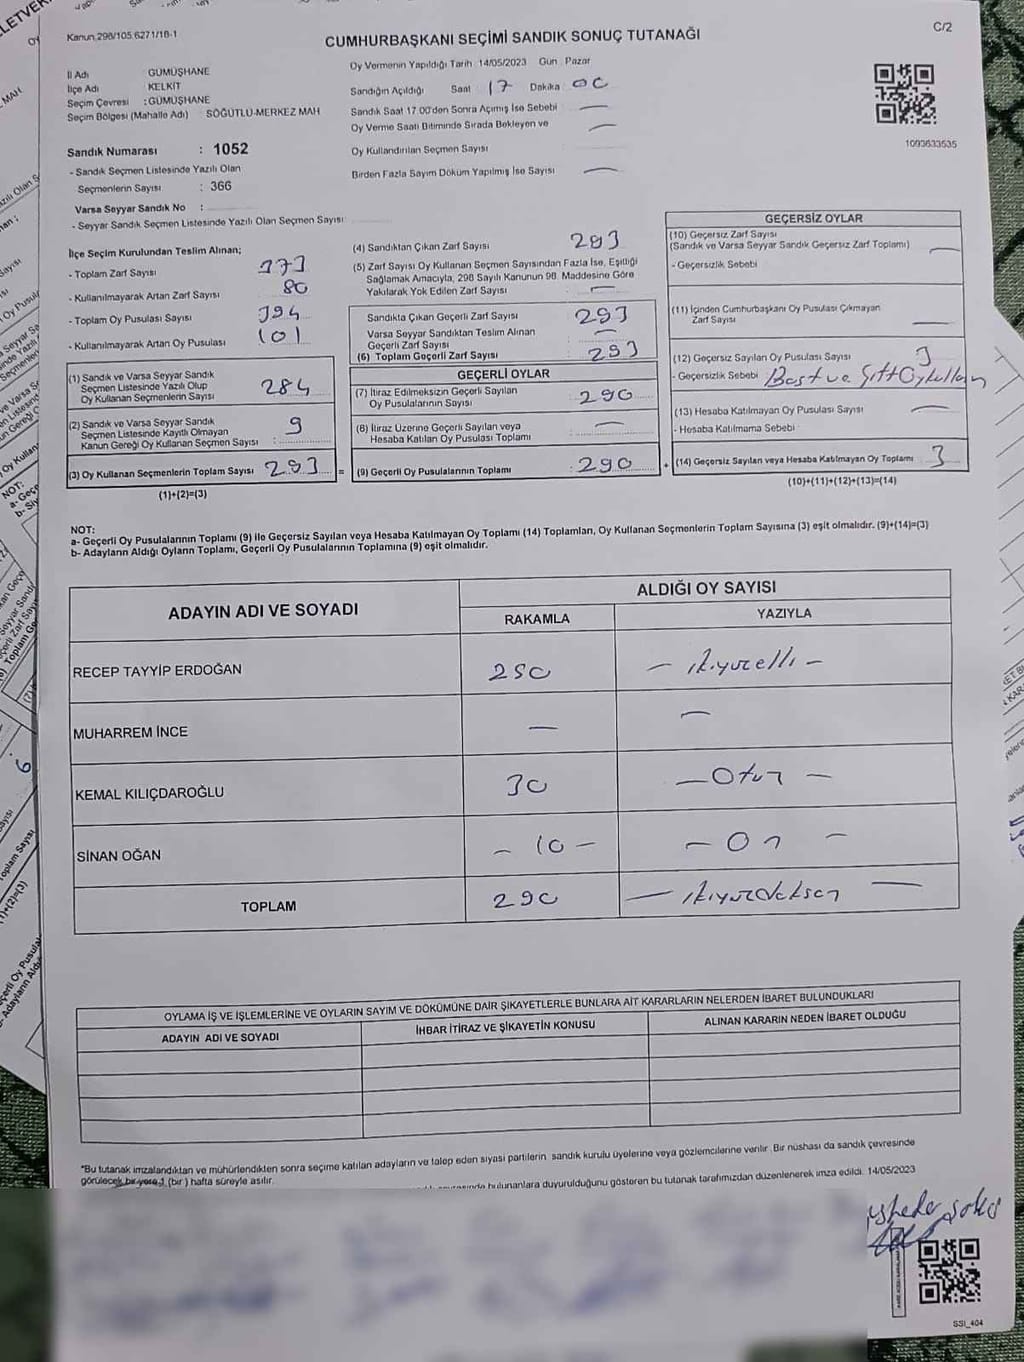 Kanun 298/105 6271/18-1
CUMHURBAŞKANI SEÇİMİ SANDIK SONUÇ TUTANAĞI
C/2
İl Adı GÜMÜŞHANE
İlçe Adı KELKİT
Seçim Çevresi : GÜMÜŞHANE
Seçim Bölgesi (Mahalle Adı) SÖĞÜTLÜ-MERKEZ MAH
Sandık Numarası : 1052
- Sandık Seçmen Listesinde Yazılı Olan
Seçmenlerin Sayısı : 366
Varsa Seyyar Sandık No :
- Seyyar Sandık Seçmen Listesinde Yazılı Olan Seçmen Sayısı
Oy Vermenin Yapıldığı Tarih 14/05/2023 Gün Pazar
Sandığın Açıldığı Saat 17 Dakika 00
Sandık Saat 17.00'den Sonra Açımış İse Sebebi —
Oy Verme Saati Bitiminde Sırada Bekleyen ve —
Oy Kullandırılan Seçmen Sayısı
Birden Fazla Sayım Döküm Yapılmış İse Sayısı —
1093633535
İlçe Seçim Kurulundan Teslim Alınan;
- Toplam Zarf Sayısı 373
- Kullanılmayarak Artan Zarf Sayısı 80
- Toplam Oy Pusulası Sayısı 394
- Kullanılmayarak Artan Oy Pusulası 101
(1) Sandık ve Varsa Seyyar Sandık
Seçmen Listesinde Yazılı Olup
Oy Kullanan Seçmenlerin Sayısı 284
(2) Sandık ve Varsa Seyyar Sandık
Seçmen Listesinde Kayıtlı Olmayan
Kanun Gereği Oy Kullanan Seçmen Sayısı : 9
(3) Oy Kullanan Seçmenlerin Toplam Sayısı 293 =
(1)+(2)=(3)
(4) Sandıktan Çıkan Zarf Sayısı 293
(5) Zarf Sayısı Oy Kullanan Seçmen Sayısından Fazla İse, Eşitliği
Sağlamak Amacıyla, 298 Sayılı Kanunun 98. Maddesine Göre
Yakılarak Yok Edilen Zarf Sayısı : —
Sandıkta Çıkan Geçerli Zarf Sayısı 293
Varsa Seyyar Sandıktan Teslim Alınan
Geçerli Zarf Sayısı —
(6) Toplam Geçerli Zarf Sayısı 293
GEÇERLİ OYLAR
(7) İtiraz Edilmeksizin Geçerli Sayılan
Oy Pusulalarının Sayısı : 290
(8) İtiraz Üzerine Geçerli Sayılan veya
Hesaba Katılan Oy Pusulası Toplamı : —
(9) Geçerli Oy Pusulalarının Toplamı : 290 +
GEÇERSİZ OYLAR
(10) Geçersiz Zarf Sayısı
(Sandık ve Varsa Seyyar Sandık Geçersiz Zarf Toplamı) —
- Geçersizlik Sebebi
(11) İçinden Cumhurbaşkanı Oy Pusulası Çıkmayan
Zarf Sayısı —
(12) Geçersiz Sayılan Oy Pusulası Sayısı 3
- Geçersizlik Sebebi
(13) Hesaba Katılmayan Oy Pusulası Sayısı —
- Hesaba Katılmama Sebebi
(14) Geçersiz Sayılan veya Hesaba Katılmayan Oy Toplamı 3
(10)+(11)+(12)+(13)=(14)
NOT:
a- Geçerli Oy Pusulalarının Toplamı (9) ile Geçersiz Sayılan veya Hesaba Katılmayan Oy Toplamı (14) Toplamları, Oy Kullanan Seçmenlerin Toplam Sayısına (3) eşit olmalıdır. (9)+(14)=(3)
b- Adayların Aldığı Oyların Toplamı, Geçerli Oy Pusulalarının Toplamına (9) eşit olmalıdır.
ADAYIN ADI VE SOYADI ALDIĞI OY SAYISI
RAKAMLA YAZIYLA
RECEP TAYYİP ERDOĞAN 250 — ikiyüzelli —
MUHARREM İNCE — —
KEMAL KILIÇDAROĞLU 30 — Otuz —
SİNAN OĞAN — 10 — — On —
TOPLAM 290 — ikiyüzdoksan —
OYLAMA İŞ VE İŞLEMLERİNE VE OYLARIN SAYIM VE DÖKÜMÜNE DAİR ŞİKAYETLERLE BUNLARA AİT KARARLARIN NELERDEN İBARET BULUNDUKLARI
ADAYIN ADI VE SOYADI İHBAR İTİRAZ VE ŞİKAYETİN KONUSU ALINAN KARARIN NEDEN İBARET OLDUĞU
*Bu tutanak imzalandıktan ve mühürlendikten sonra seçime katılan adayların ve talep eden siyasi partilerin sandık kurulu üyelerine veya gözlemcilerine verilir. Bir nüshası da sandık çevresinde
görülecek bir yere 1 (bir) hafta süreyle asılır.
bulunanlara duyurulduğunu gösteren bu tutanak tarafımızdan düzenlenerek imza edildi. 14/05/2023
SSI_404